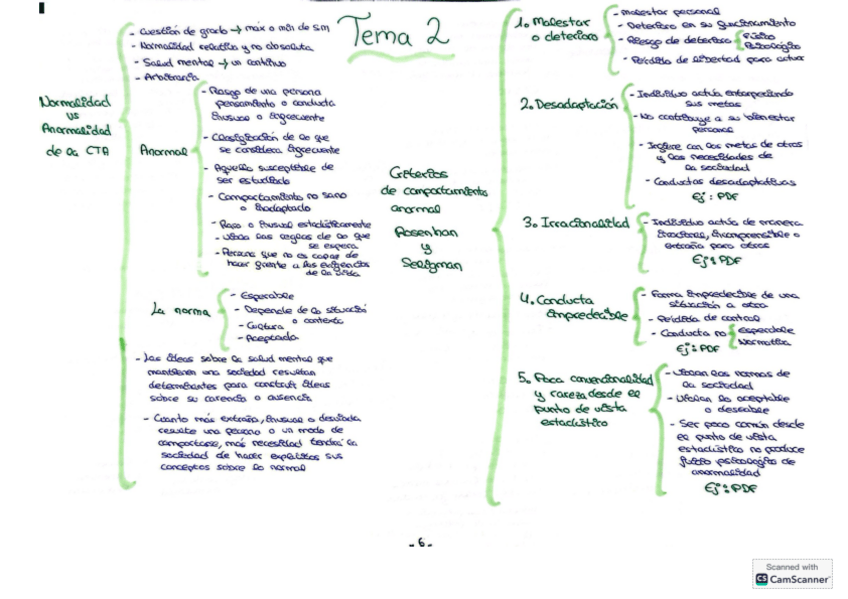 Tema 2
Normalidad
vs
Anormalidad
de la CTA
- Cuestión de grado → máx o mín de sm
- Normalidad relativa y no absoluta
- Salud mental → un continuo
- Arbitraria
Anormal
- Rasgo de una persona
pensamiento o conducta
inusual o infrecuente
- Clasificación de lo que
se considera infrecuente
- Aquello susceptible de
ser estudiado
- Comportamiento no sano
o inadaptado
- Raro o inusual estadísticamente
- Viola las reglas de lo que
se espera
- Persona que no es capaz de
hacer frente a las exigencias
de la vida
La norma
- Esperable
- Depende de la situación
o contexto
- Cultura
- Aceptado
- Las ideas sobre la salud mental que
mantienen una sociedad resultan
determinantes para construir ideas
sobre su carencia o ausencia
- Cuanto más extraña, inusual o desviada
resulte una persona o un modo de
comportarse, más necesidad tendrá la
sociedad de hacer explícitos sus
conceptos sobre lo normal
Criterios
de comportamiento
anormal
Rosenhan
y
Seligman
1. Malestar
o deterioro
- Malestar personal
- Deterioro en su funcionamiento
- Riesgo de deterioro
Físico
Psicológico
- Pérdida de libertad para actuar
2. Desadaptación
- Individuo actúa entorpeciendo
sus metas
- No contribuye a su bienestar
personal
- Infiere con las metas de otros
y las necesidades de
la sociedad
- Conductas desadaptativas
Ej: PDF
3. Irracionalidad
- Individuo actúa de manera
irracional, incomprensible o
extraña para otros
Ej: PDF
4. Conducta
impredecible
- Forma impredecible de una
situación a otra
- Pérdida de control
- Conducta no
Esperable
Normativa
Ej: PDF
5. Poca convencionalidad
y rareza desde el
punto de vista
estadístico
- Violan las normas de
la sociedad
- Violan lo aceptable
o deseable
- Ser poco común desde
el punto de vista
estadístico no produce
juicio psicológico de
anormalidad
Ej: PDF
- 6 -
Scanned with
CS CamScanner